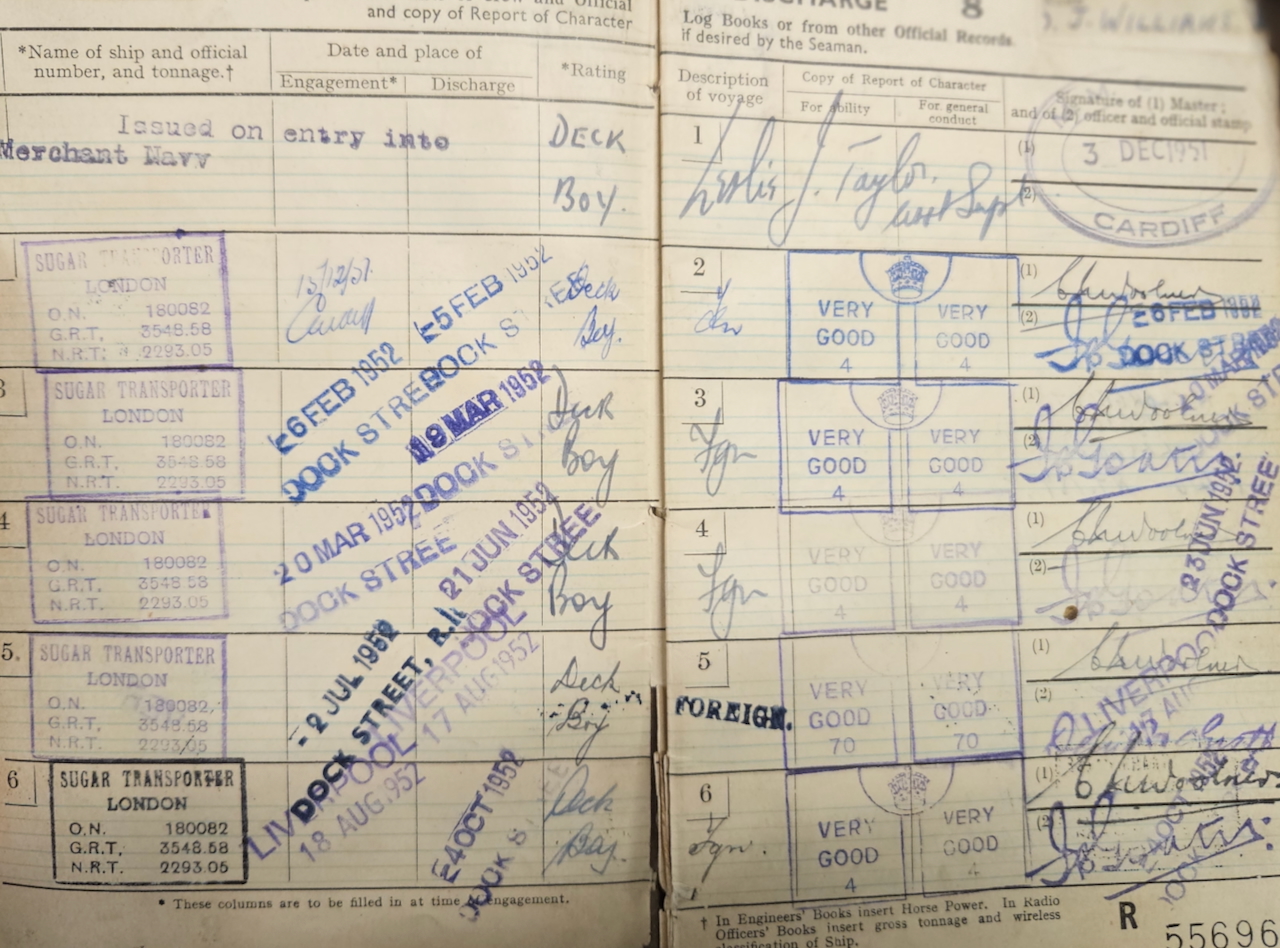 and copy of Report of Character
*Name of ship and official
number, and tonnage.†
Date and place of
Engagement*
Discharge
*Rating
Issued on entry into
Merchant Navy
DECK
BOY.
SUGAR TRANSPORTER
LONDON
O.N. 180082
G.R.T. 3548.58
N.R.T. 2293.05
Cardiff
25 FEB 1952
DOCK STREE
Deck
Boy.
3
SUGAR TRANSPORTER
LONDON
O.N. 180082
G.R.T. 3548.58
N.R.T. 2293.05
26 FEB 1952
DOCK STRE
19 MAR 1952
DOCK ST
Deck
Boy
4
SUGAR TRANSPORTER
LONDON
O.N. 180082
G.R.T. 3548.58
N.R.T. 2293.05
20 MAR 1952
DOCK STREE
21 JUN 1952
DOCK STREE
Deck
Boy
5.
SUGAR TRANSPORTER
LONDON
O.N. 180082
G.R.T. 3548.58
N.R.T. 2293.05
- 2 JUL 1952
DOCK STREET,
LIVERPOOL
17 AUG 1952
Deck
Boy
6
SUGAR TRANSPORTER
LONDON
O.N. 180082
G.R.T. 3548.58
N.R.T. 2293.05
LIVERPOOL
18 AUG. 952
E4 OCT 1952
DOCK S
Deck
Boy.
* These columns are to be filled in at time of engagement.
DISCHARGE 8
Log Books or from other Official Records
if desired by the Seaman.
J. WILLIAMS
Description
of voyage
Copy of Report of Character
For ability
For general
conduct
Signature of (1) Master;
and of (2) officer and official stamp.
1
Leslie J. Taylor.
asst Supt
(1)
(2)
3 DEC 1951
CARDIFF
2
VERY
GOOD
4
VERY
GOOD
4
(1)
(2)
26 FEB 1952
DOCK STRE
3
Fgn
VERY
GOOD
4
VERY
GOOD
4
(1)
(2)
4
Fgn
VERY
GOOD
4
VERY
GOOD
4
(1)
(2)
23 JUN 1952.
DOCK STREE
5
FOREIGN.
VERY
GOOD
70
VERY
GOOD
70
(1)
(2)
LIVERPOO
17 AUG
6
Fgn.
VERY
GOOD
4
VERY
GOOD
4
(1)
(2)
† In Engineers' Books insert Horse Power. In Radio
Officers' Books insert gross tonnage and wireless
classification of Ship.
R 55696